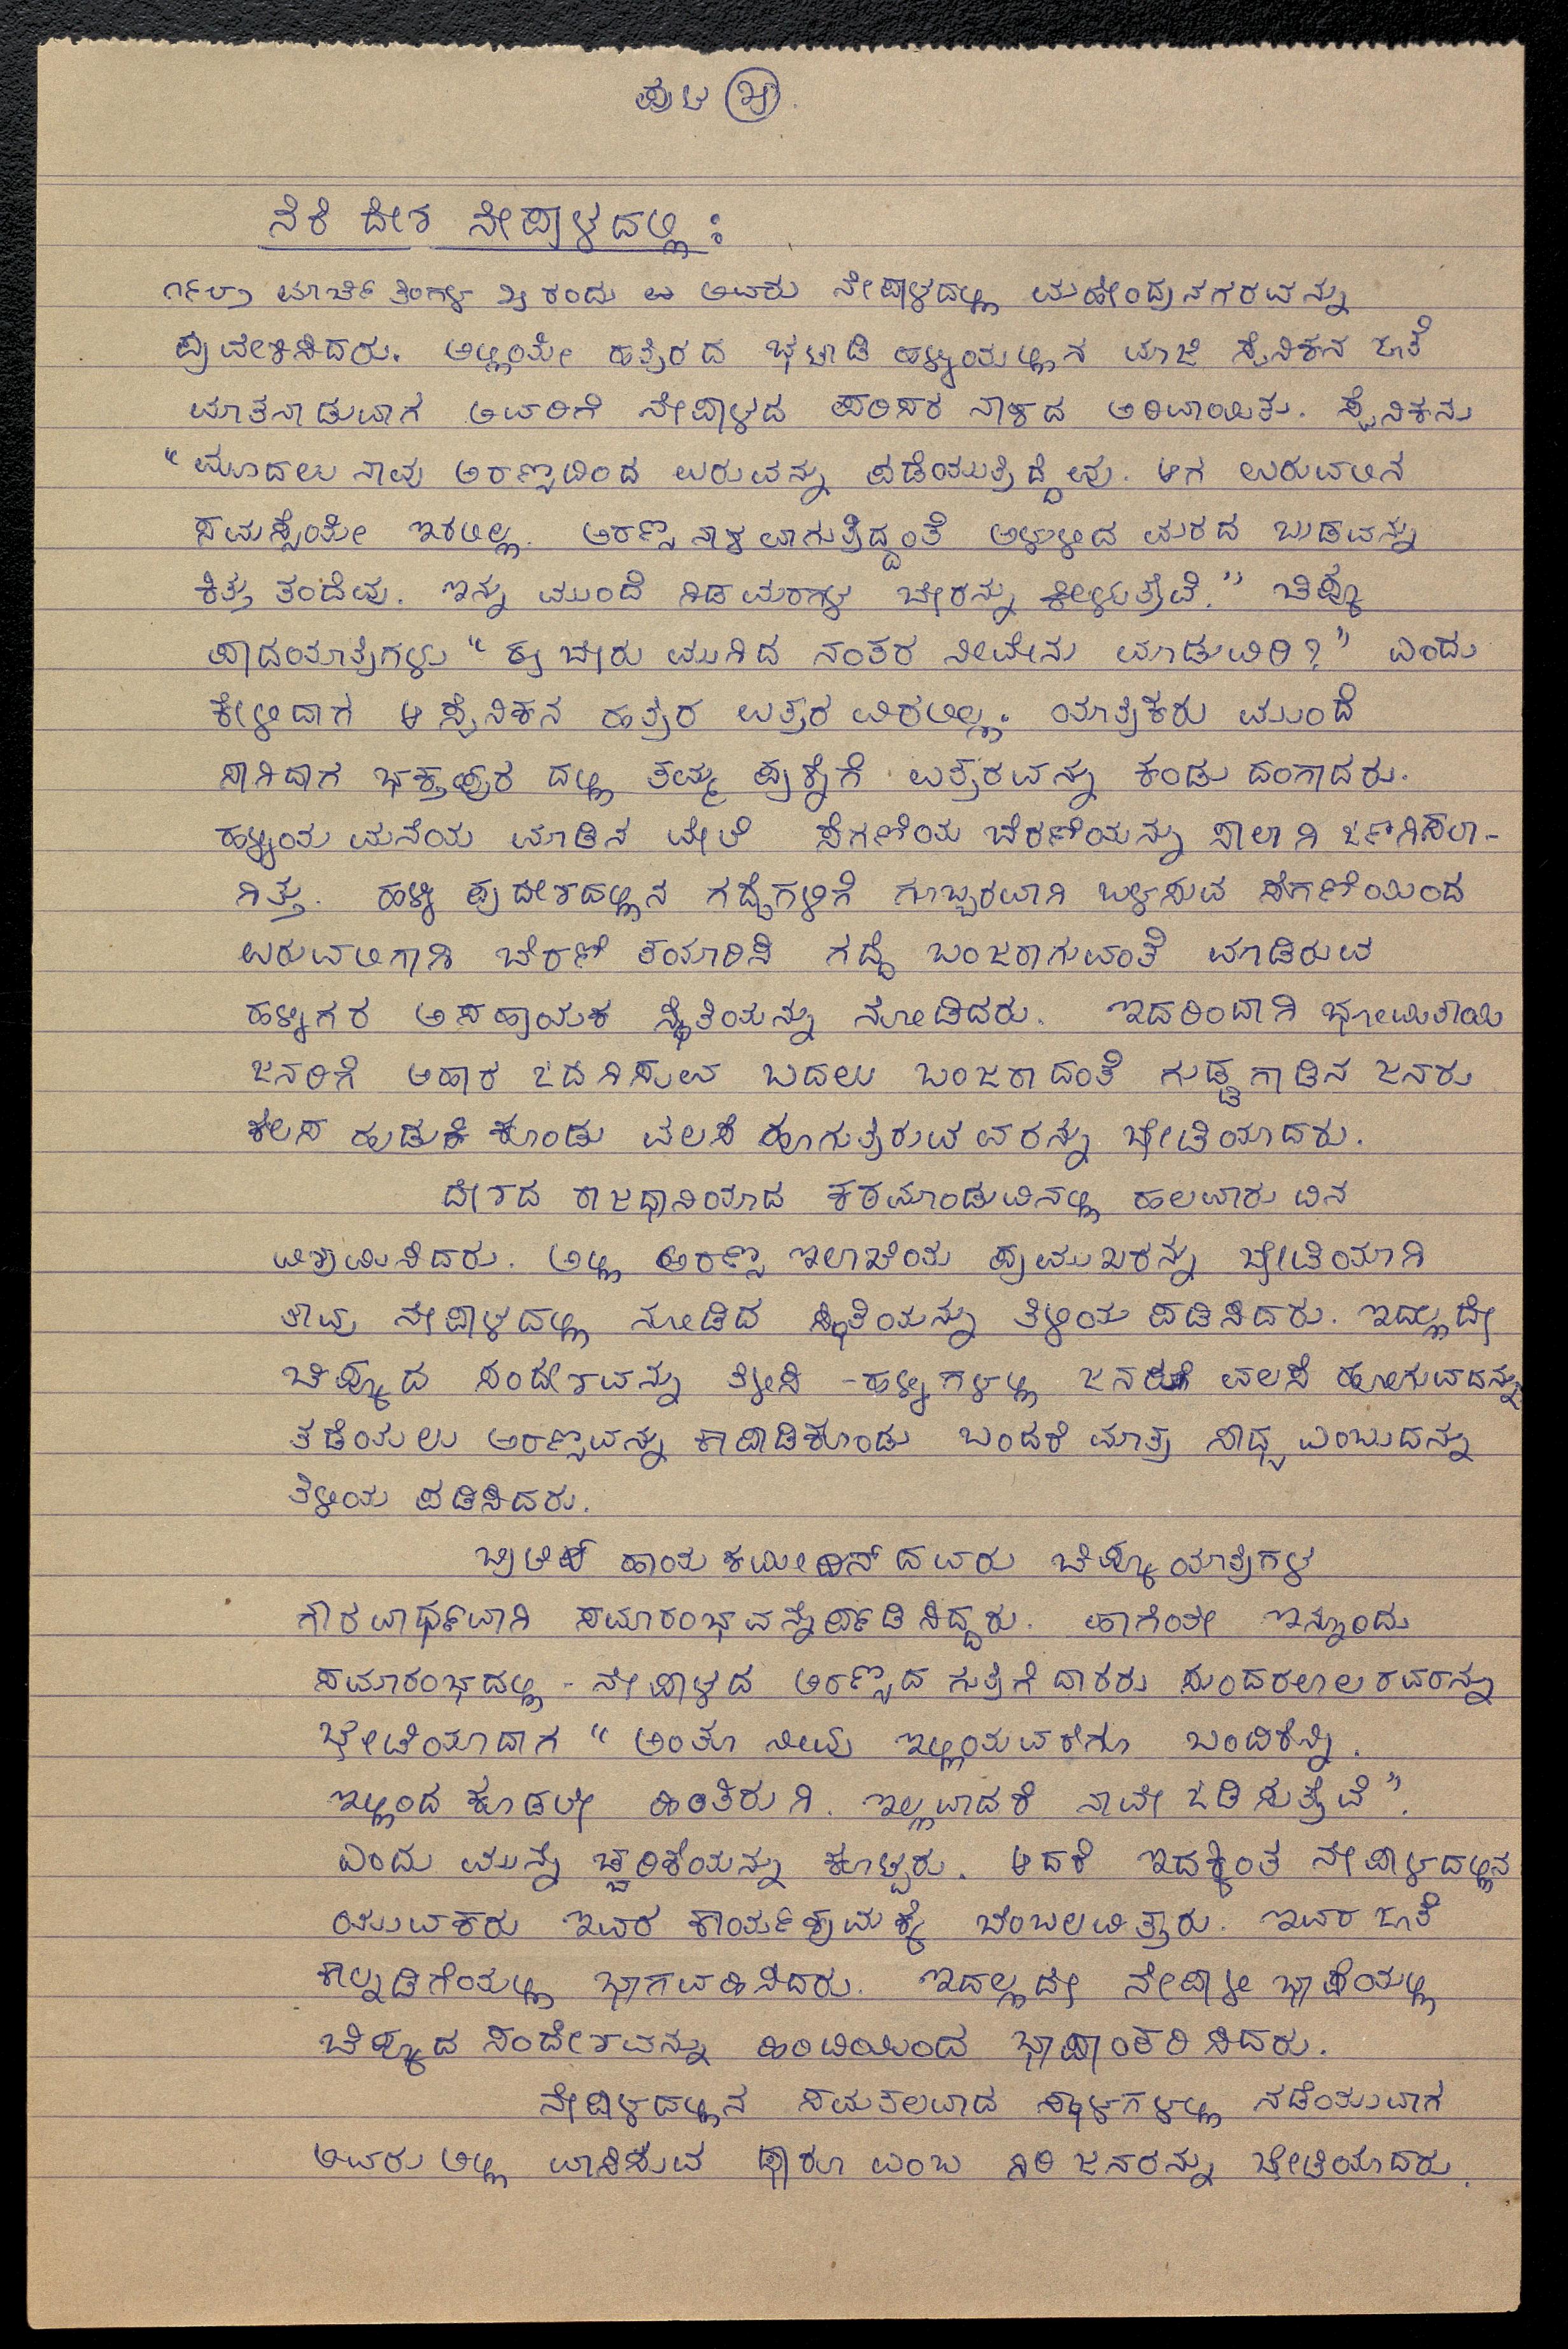 ಪುಟ ೫.
ನೆರೆ ದೇಶ ನೇಪಾಳದಲ್ಲಿ :
೧೯೮೨ ಮಾರ್ಚ್ ತಿಂಗಳ ೫ ರಂದು ಅವರು ನೇಪಾಳದಲ್ಲಿ ಮಹೇಂದ್ರನಗರವನ್ನು
ಪ್ರವೇಶಿಸಿದರು. ಅಲ್ಲಿಯೇ ಹತ್ತಿರದ ಹಳ್ಳಿಯಲ್ಲಿನ ಮಾಜಿ ಸೈನಿಕನ ಜತೆ
ಮಾತನಾಡುವಾಗ ಅವರಿಗೆ ನೇಪಾಳದ ಪರಿಸರ ನಾಶದ ಅರಿವಾಯಿತು. ಸೈನಿಕನು
“ ಮೊದಲು ನಾವು ಅರಣ್ಯದಿಂದ ಉರುವನ್ನು ಪಡೆಯುತ್ತಿದ್ದೆವು. ಆಗ ಉರುವಲಿನ
ಸಮಸ್ಯೆಯೇ ಇರಲಿಲ್ಲ. ಅರಣ್ಯ ನಾಶವಾಗುತ್ತಿದ್ದಂತೆ ಅಳುಳಿದ ಮರದ ಬುಡವನ್ನು
ಕಿತ್ತು ತಂದೆವು. ಇನ್ನು ಮುಂದೆ ಗಿಡಮರಗಳ ಬೇರನ್ನು ಕೀಳುತ್ತೇವೆ.” ಚಿಪ್ಕೊ
ಪಾದಯಾತ್ರಿಗಳು “ ಈ ಬೇರು ಮುಗಿದ ನಂತರ ನೀವೇನು ಮಾಡುವಿರಿ ? ” ಎಂದು
ಕೇಳಿದಾಗ ಆ ಸೈನಿಕನ ಹತ್ತಿರ ಉತ್ತರ ವಿರಲಿಲ್ಲ. ಯಾತ್ರಿಕರು ಮುಂದೆ
ಸಾಗಿದಾಗ ಭಕ್ತಪುರ ದಲ್ಲಿ ತಮ್ಮ ಪ್ರಶ್ನೆಗೆ ಉತ್ತರವನ್ನು ಕಂಡು ದಂಗಾದರು.
ಹಳ್ಳಿಯ ಮನೆಯ ಮಾಡಿನ ಮೇಲೆ ಸೆಗಣಿಯ ಬೆರಣಿಯನ್ನು ಸಾಲಾಗಿ ಒಣಗಿಸಲಾ-
ಗಿತ್ತು. ಹಳ್ಳಿ ಪ್ರದೇಶದಲ್ಲಿನ ಗದ್ದೆಗಳಿಗೆ ಗೊಬ್ಬರವಾಗಿ ಬಳಸುವ ಸೆಗಣಿಯಿಂದ
ಉರುವಲಿಗಾಗಿ ಬೆರಣಿ ತಯಾರಿಸಿ ಗದ್ದೆ ಬಂಜರಾಗುವಂತೆ ಮಾಡಿರುವ
ಹಳ್ಳಿಗರ ಅಸಹಾಯಕ ಸ್ಥಿತಿಯನ್ನು ನೋಡಿದರು. ಇದರಿಂದಾಗಿ ಭೂಮಿತಾಯಿ
ಜನರಿಗೆ ಆಹಾರ ಒದಗಿಸುವ ಬದಲು ಬಂಜರಾದಂತೆ ಗುಡ್ಡಗಾಡಿನ ಜನರು
ಕೆಲಸ ಹುಡುಕಿಕೊಂಡು ವಲಸೆ ಹೋಗುತ್ತಿರುವ ವರನ್ನು ಭೇಟಿಯಾದರು.
ದೇಶದ ರಾಜಧಾನಿಯಾದ ಕಠಮಾಂಡುವಿನಲ್ಲಿ ಹಲವಾರು ದಿನ
ವಿಶ್ರಮಿಸಿದರು. ಅಲ್ಲಿ ಅರಣ್ಯ ಇಲಾಖೆಯ ಪ್ರಮುಖರನ್ನು ಭೇಟಿಯಾಗಿ
ತಾವು ನೇಪಾಳದಲ್ಲಿ ನೋಡಿದ ಸ್ಥಿತಿಯನ್ನು ತಿಳಿಯ ಪಡಿಸಿದರು. ಇದಲ್ಲದೇ
ಚಿಪ್ಕೊದ ಸಂದೇಶವನ್ನು ತಿಳಿಸಿ - ಹಳ್ಳಿಗಳಲ್ಲಿ ಜನರು ವಲಸೆ ಹೋಗುವದನ್ನು
ತಡೆಯಲು ಅರಣ್ಯವನ್ನು ಕಾಪಾಡಿಕೊಂಡು ಬಂದರೆ ಮಾತ್ರ ಸಾಧ್ಯ ಎಂಬುದನ್ನು
ತಿಳಿಯ ಪಡಿಸಿದರು.
ಬ್ರಿಟಿಷ್ ಹಾಯ ಕಮೀಷನ್ ದವರು ಚಿಪ್ಕೊ ಯಾತ್ರಿಗಳ
ಗೌರವಾರ್ಥವಾಗಿ ಸಮಾರಂಭವನ್ನೇರ್ಪಡಿಸಿದ್ದರು. ಹಾಗೆಯೇ ಇನ್ನೊಂದು
ಸಮಾರಂಭದಲ್ಲಿ - ನೇಪಾಳದ ಅರಣ್ಯದ ಗುತ್ತಿಗೆ ದಾರರು ಸುಂದರಲಾಲರವರನ್ನು
ಭೇಟಿಯಾದಾಗ “ ಅಂತೂ ನೀವು ಇಲ್ಲಿಯವರೆಗೂ ಬಂದಿರೆನ್ನಿ.
ಇಲ್ಲಿಂದ ಕೂಡಲೇ ಹಿಂತಿರುಗಿ. ಇಲ್ಲವಾದರೆ ನಾವೇ ಓಡಿಸುತ್ತೇವೆ ”.
ಎಂದು ಮುನ್ನೆಚ್ಚರಿಕೆಯನ್ನು ಕೊಟ್ಟರು. ಆದರೆ ಇದಕ್ಕಿಂತ ನೇಪಾಳದಲ್ಲಿನ
ಯುವಕರು ಇವರ ಕಾರ್ಯಕ್ರಮಕ್ಕೆ ಬೆಂಬಲವಿತ್ತರು. ಇವರ ಜತೆ
ಕಾಲ್ನಡಿಗೆಯಲ್ಲಿ ಭಾಗವಹಿಸಿದರು. ಇದಲ್ಲದೇ ನೇಪಾಳೀ ಭಾಷೆಯಲ್ಲಿ
ಚಿಪ್ಕೊದ ಸಂದೇಶವನ್ನು ಹಿಂದಿಯಿಂದ ಭಾಷಾಂತರಿಸಿದರು.
ನೇಪಾಳದಲ್ಲಿನ ಸಮತಲವಾದ ಸ್ಥಳಗಳಲ್ಲಿ ನಡೆಯುವಾಗ
ಅವರು ಅಲ್ಲಿ ವಾಸಿಸುವ ಥಾರೂ ಎಂಬ ಗಿರಿಜನರನ್ನು ಭೇಟಿಯಾದರು.